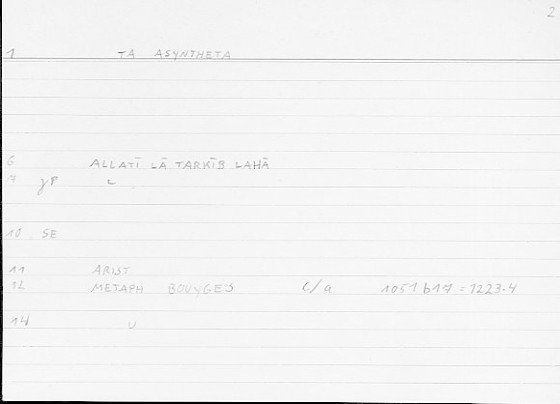 2
1 TA ASYNTHETA
6 ALLATĪ LĀ TARKĪB LAHĀ
7 γP L
10 SE
11 ARIST
12 METAPH BOUYGES C/a 1051 b17 = 1223.4
14 U